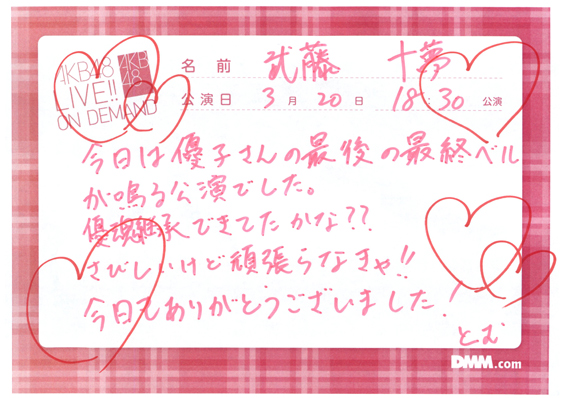 AKB48
LIVE!!
ON DEMAND
AKB
48
名前 武藤 十夢
公演日 3月20日 18:30 公演
今日は優子さんの最後の最終ベル
が鳴る公演でした。
優魂継承できてたかな??
さびしいけど頑張らなきゃ!!
今日もありがとうございました!
とむ
DMM.com